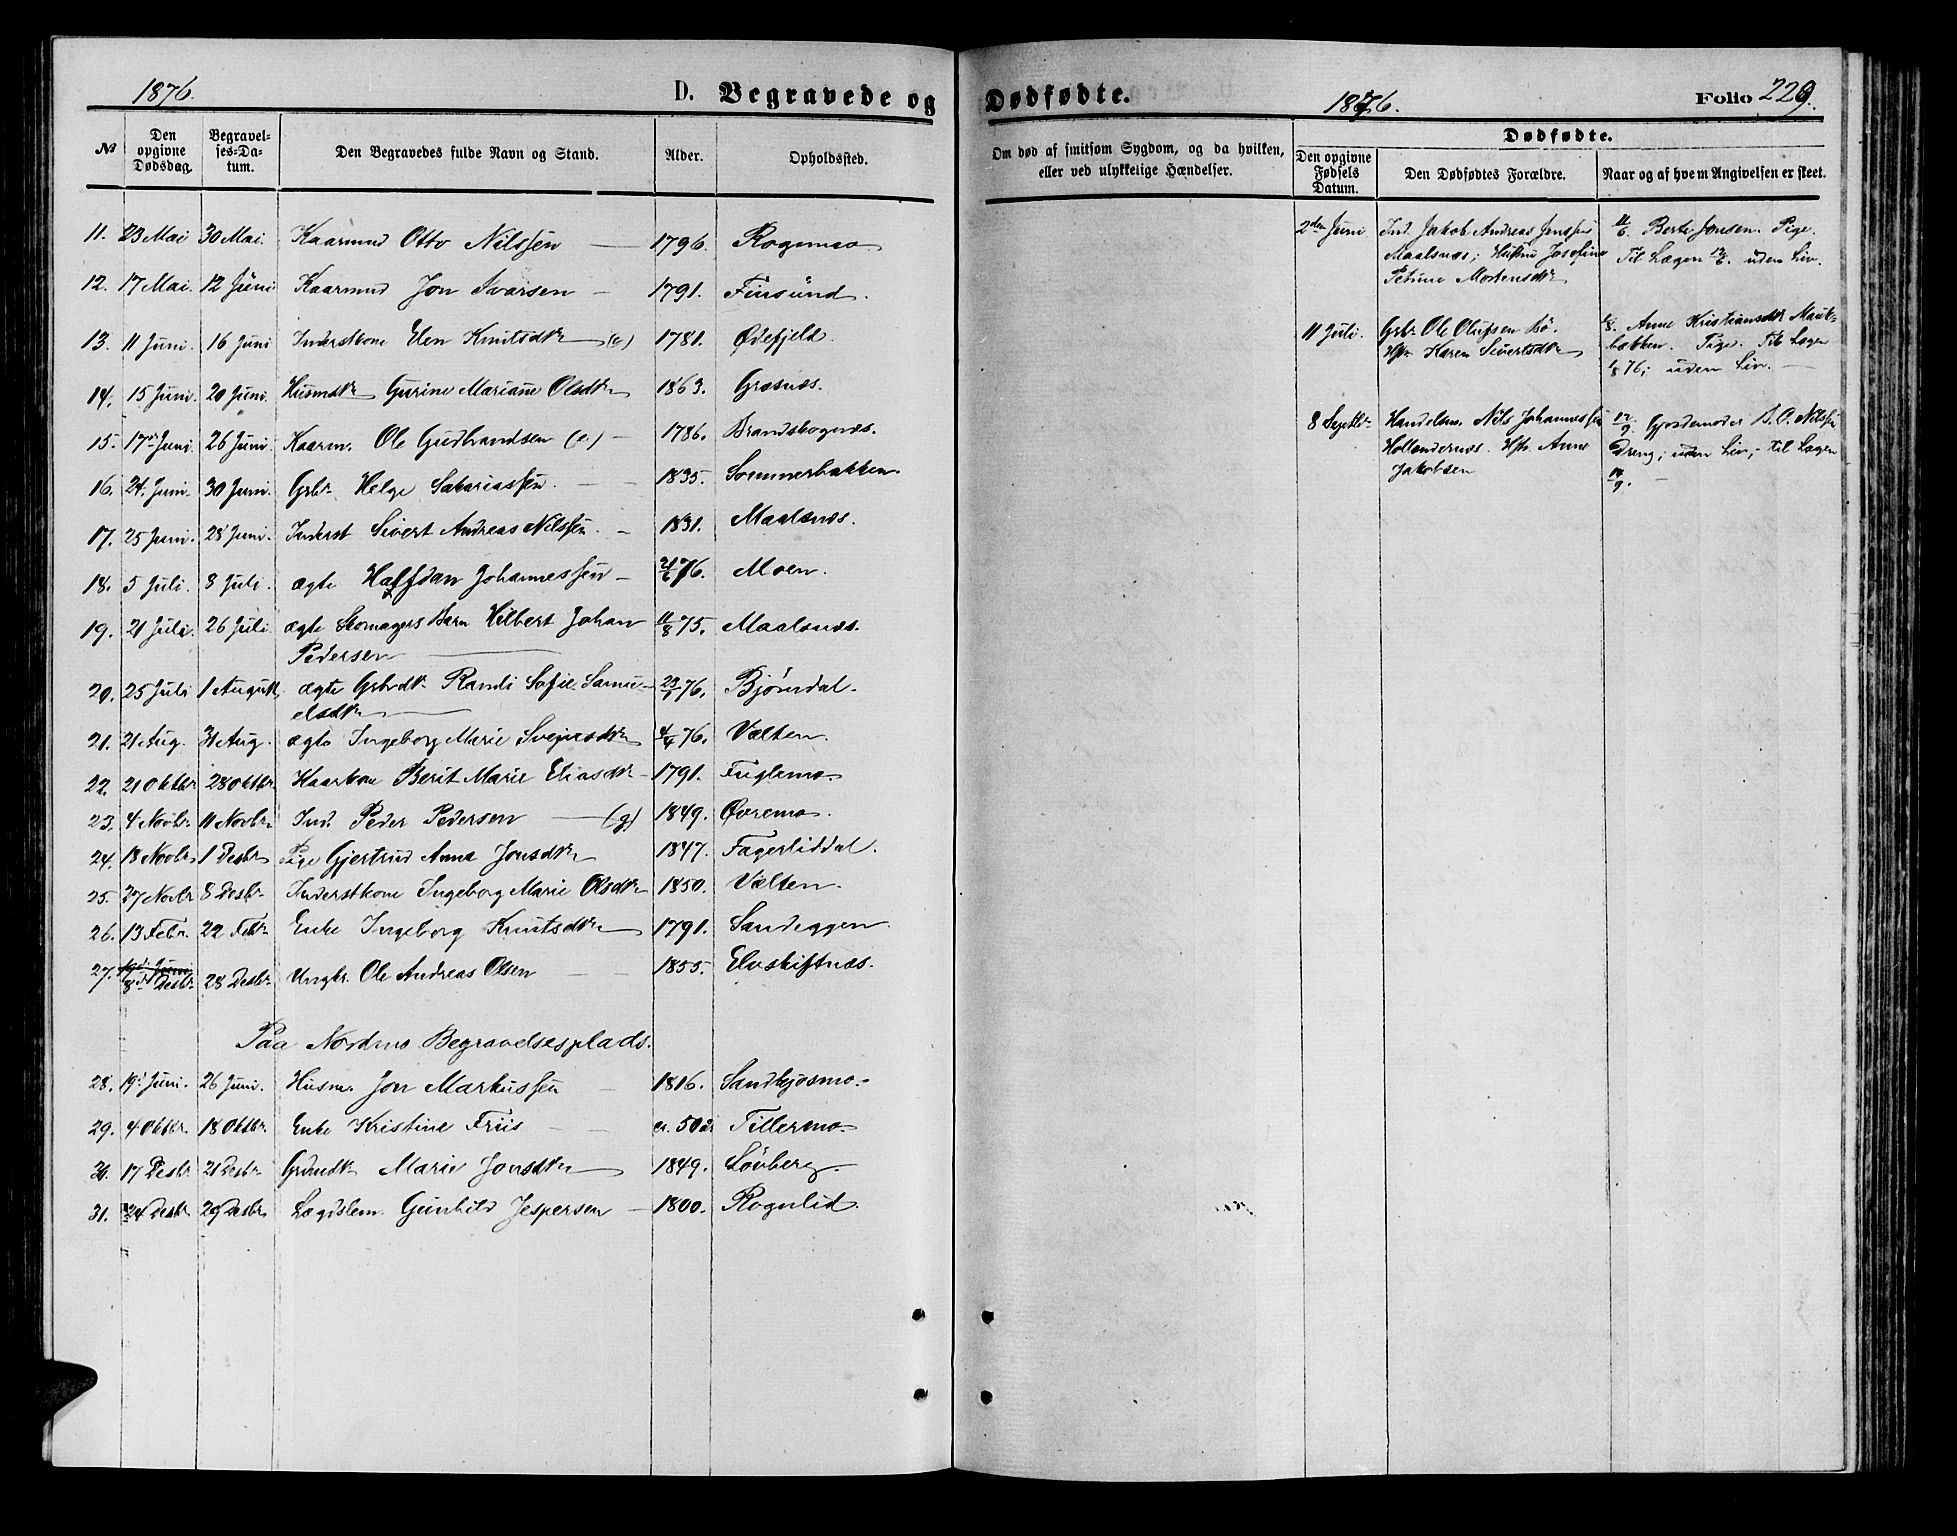 1876. D. Begravede og
№ Den opgivne Dødsdag. Begravelses-Datum. Den Begravedes fulde Navn og Stand. Alder. Opholdssted.
11. 23 Mai 30 Mai. Kaarmand Otto Nilssen 1796. Rogemo
12. 17 Mai. 12 Juni Kaarmand Jon Ivarsen 1791. Finsund.
13. 11 Juni. 16 Juni Inderstkone Elen Knutsdtr (e) 1781. Ødefjeld.
14. 15 Juni. 20 Juni. Husmdtr Gurine Mariane Olsdtr 1863. Græsnæs.
15. 17 Juni. 26 Juni. Kaarm. Ole Gudbrandsen (e) 1786. Brandskognæs.
16. 24. Juni 30 Juni. Grbr. Helge Sakariassen. 1835. Sommerbakken.
17. 25 Juni. 28 Juni. Inderst Sivert Andreas Nilssen. 1831. Maalsnæs.
18. 5 Juli. 8 Juli. ægte Halfdan Johannessen 21/6 76. Moen.
19. 21 Juli. 26 Juli. ægte Skomagers Barn Hilbert Johan 11/8 75. Maalsnæs.
Pedersen
20. 25 Juli 1 August. ægte Grbrdtr. Randi Sofie Samu- 23/1 76. Bjørndal.
elsdtr
21. 21 Aug. 31 Aug. ægte Ingeborg Marie Svejnsdtr 4/4 76. Vælten.
22. 21 Oktbr 28 Oktbr. Kaarkone Berit Marie Eliasdtr 1791. Fuglemo.
23. 4 Novbr. 11 Novbr. Ind. Peder Pedersen (g) 1849. Øvremo.
24. 18 Novbr 1 Desbr Pige Gjertrud Anna Jonsdtr 1847. Fagerliddal.
25. 27 Novbr 8 Desbr. Inderstkone Ingeborg Marie Olsdtr 1850. Vælten.
26. 13 Febr. 22 Febr Enke Ingeborg Knutsdtr 1791. Sandeggen
27. 8 Desbr. 28 Desbr. Ungkr. Ole Andreas Olsen 1855. Elvskiftnæs.
Paa Nordmo Begravelsesplads.
28. 19 Juni. 26 Juni. Husm. Jon Markussen 1816. Sandkjosmo.
29. 4 Oktbr. 18 Oktbr. Enke Kristine Friis ca. 50 år Tillermo.
30. 17 Desbr 21 Desbr Grbrmdtr Marie Jonsdtr 1849. Løvberg.
31. 24 Desbr. 29 Desbr. Lægdslem. Gunhild Jespersen 1800. Rognlid.
Dødfødte. 1876. Folio 229.
Om død af smitsom Sygdom, og da hvilken, eller ved ulykkelige Hændelser. Den opgivne Fødsels Datum. Dødfødte. Den Dødfødtes Forældre. Naar og af hvem Angivelsen er skeet.
2den Juni Ind. Jakob Andreas Jenssen 11/6 Berte Jonsen. Pige.
Maalsnæs; Hustru Josefine Til Lægen 12/6. uden Liv.
Petrine Mortensdtr
11 Juli. Grbr. Ole Olufsen Bø. 1/8. Anne Kristiansdtr Mauk-
Hstr Karen Sivertsdtr bækken. Pige. Til Lægen
1/8 76; uden Liv.
8 Septbr. Handelsm. Nils Johannessen 17/9. Gjordemoder A. O. Nilssen
Hollandernæs. Hstr Anne Dreng; uden Liv; til Lægen
Jakobsen 19/9.